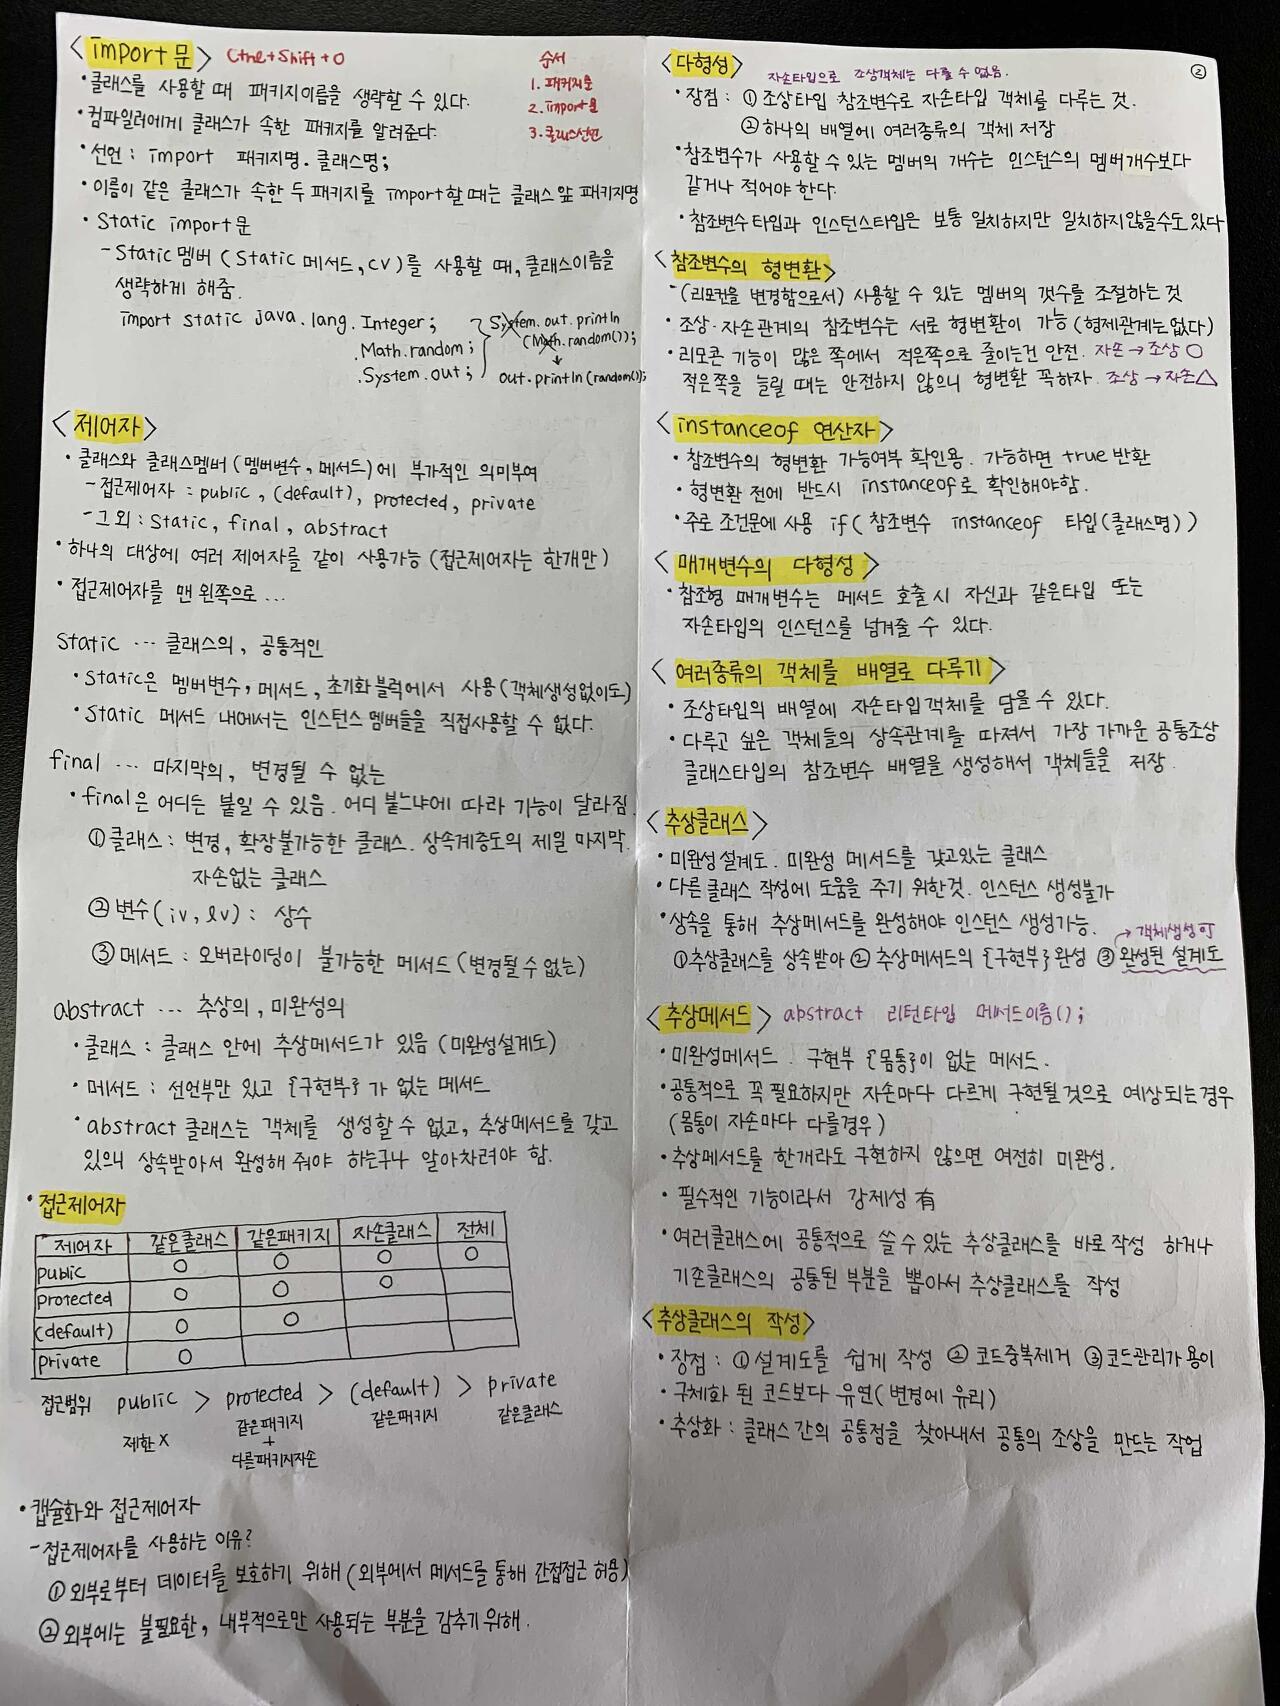 <import문> Ctrl+Shift+O
순서
1. 패키지문
2. import문
3. 클래스선언
• 클래스를 사용할 때 패키지이름을 생략할 수 있다.
• 컴파일러에게 클래스가 속한 패키지를 알려준다.
• 선언 : import 패키지명.클래스명;
• 이름이 같은 클래스가 속한 두 패키지를 import할 때는 클래스 앞 패키지명
• Static import문
- Static멤버 (Static 메서드, cv)를 사용할 때, 클래스이름을
생략하게 해줌.
import static java.lang.Integer;
.Math.random;
.System.out;
System.out.println
(Math.random());
↓
out.println(random());
<제어자>
• 클래스와 클래스멤버 (멤버변수, 메서드)에 부가적인 의미부여
- 접근제어자 : public, (default), protected, private
- 그 외 : Static, final, abstract
• 하나의 대상에 여러 제어자를 같이 사용가능 (접근제어자는 한개만)
• 접근제어자를 맨 왼쪽으로...
Static ... 클래스의, 공통적인
• Static은 멤버변수, 메서드, 초기화블럭에서 사용(객체생성없이도)
• Static 메서드 내에서는 인스턴스 멤버들을 직접사용할 수 없다.
final ... 마지막의, 변경될 수 없는
• final은 어디든 붙일 수 있음. 어디 붙느냐에 따라 기능이 달라짐.
① 클래스 : 변경, 확장불가능한 클래스. 상속계층도의 제일 마지막.
자손없는 클래스
② 변수(iv, lv) : 상수
③ 메서드 : 오버라이딩이 불가능한 메서드 (변경될 수 없는)
abstract ... 추상의, 미완성의
• 클래스 : 클래스 안에 추상메서드가 있음 (미완성설계도)
• 메서드 : 선언부만 있고 {구현부}가 없는 메서드
• abstract 클래스는 객체를 생성할 수 없고, 추상메서드를 갖고
있으니 상속받아서 완성해 줘야 하는구나 알아차려야 함.
• 접근제어자
제어자 같은클래스 같은패키지 자손클래스 전체
public ○ ○ ○ ○
protected ○ ○ ○
(default) ○ ○
private ○
접근범위 public > protected > (default) > private
제한X 같은패키지 같은패키지 같은클래스
+
다른패키지자손
• 캡슐화와 접근제어자
- 접근제어자를 사용하는 이유?
① 외부로부터 데이터를 보호하기 위해 (외부에서 메서드를 통해 간접접근 허용)
② 외부에는 불필요한, 내부적으로만 사용되는 부분을 감추기 위해.
②
<다형성> 자손타입으로 조상객체는 다룰 수 없음.
• 장점 : ① 조상타입 참조변수로 자손타입 객체를 다루는 것.
② 하나의 배열에 여러종류의 객체 저장
• 참조변수가 사용할 수 있는 멤버의 개수는 인스턴스의 멤버개수보다
같거나 적어야 한다.
• 참조변수타입과 인스턴스타입은 보통 일치하지만 일치하지않을수도있다
<참조변수의 형변환>
- (리모컨을 변경함으로서) 사용할 수 있는 멤버의 갯수를 조절하는 것
• 조상·자손관계의 참조변수는 서로 형변환이 가능 (형제관계는없다)
• 리모콘 기능이 많은 쪽에서 적은쪽으로 줄이는건 안전. 자손→조상○
적은쪽을 늘릴 때는 안전하지 않으니 형변환 꼭하자. 조상→자손△
<instanceof 연산자>
• 참조변수의 형변환 가능여부 확인용. 가능하면 true 반환
• 형변환 전에 반드시 instanceof로 확인해야함.
• 주로 조건문에 사용 if( 참조변수 instanceof 타입(클래스명) )
<매개변수의 다형성>
• 참조형 매개변수는 메서드 호출시 자신과 같은타입 또는
자손타입의 인스턴스를 넘겨줄 수 있다.
<여러종류의 객체를 배열로 다루기>
• 조상타입의 배열에 자손타입객체를 담을 수 있다.
• 다루고 싶은 객체들의 상속관계를 따져서 가장 가까운 공통조상
클래스타입의 참조변수 배열을 생성해서 객체들을 저장.
<추상클래스>
• 미완성설계도. 미완성 메서드를 갖고있는 클래스
• 다른 클래스 작성에 도움을 주기 위한것. 인스턴스 생성불가
• 상속을 통해 추상메서드를 완성해야 인스턴스 생성가능.
→ 객체생성 可
① 추상클래스를 상속받아 ② 추상메서드의 {구현부} 완성 ③ 완성된 설계도
<추상메서드> abstract 리턴타입 메서드이름();
• 미완성메서드. 구현부 {몸통}이 없는 메서드.
• 공통적으로 꼭 필요하지만 자손마다 다르게 구현될것으로 예상되는경우
(몸통이 자손마다 다를경우)
• 추상메서드를 한개라도 구현하지 않으면 여전히 미완성.
• 필수적인 기능이라서 강제성 有
• 여러클래스에 공통적으로 쓸 수 있는 추상클래스를 바로 작성 하거나
기존클래스의 공통된 부분을 뽑아서 추상클래스를 작성
<추상클래스의 작성>
• 장점 : ① 설계도를 쉽게 작성 ② 코드중복제거 ③ 코드관리가 용이
• 구체화 된 코드보다 유연(변경에 유리)
• 추상화 : 클래스 간의 공통점을 찾아내서 공통의 조상을 만드는 작업